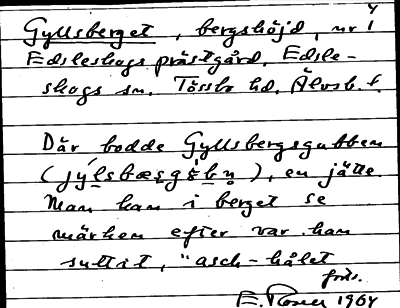 Gyllsberget, bergshöjd, nr i
Edsleskogs prästgård, Edsle-
skogs sn. Tössbo hd. Älvsb. l.
Där bodde Gyllsbergsgubben
en jätte.
Man kan i berget se
märken efter var han
suttit, "asch-hålet
forts.
E. Rosen 1964